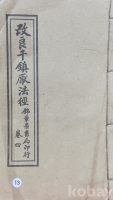 改良千鎮厭法經
錦章書局印行
卷四
13
kobay